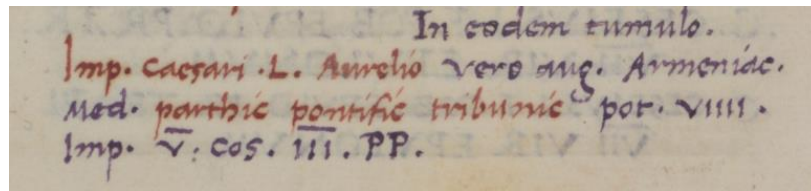 In eodem tumulo.
Imp. Caesari . L. Aurelio vero aug. Armeniac.
Med. parthic pontific tribunic pot. VIIII.
Imp. V̅. cos. I̅I̅I̅. PP.